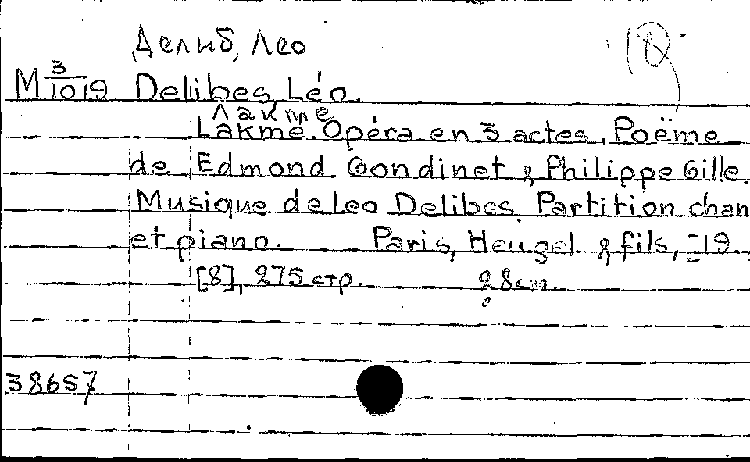 Делиб, Лео
18
М 3/1019 Delibes, Léo.
Лакме
Lakmé. Opéra en 3 actes, Poëme
de Edmond Gondinet & Philippe Gille.
Musique de Leo Delibes Partition chan
et piano. Paris, Heugel & fils, -19
[8], 275 стр. 28 cm.
38657